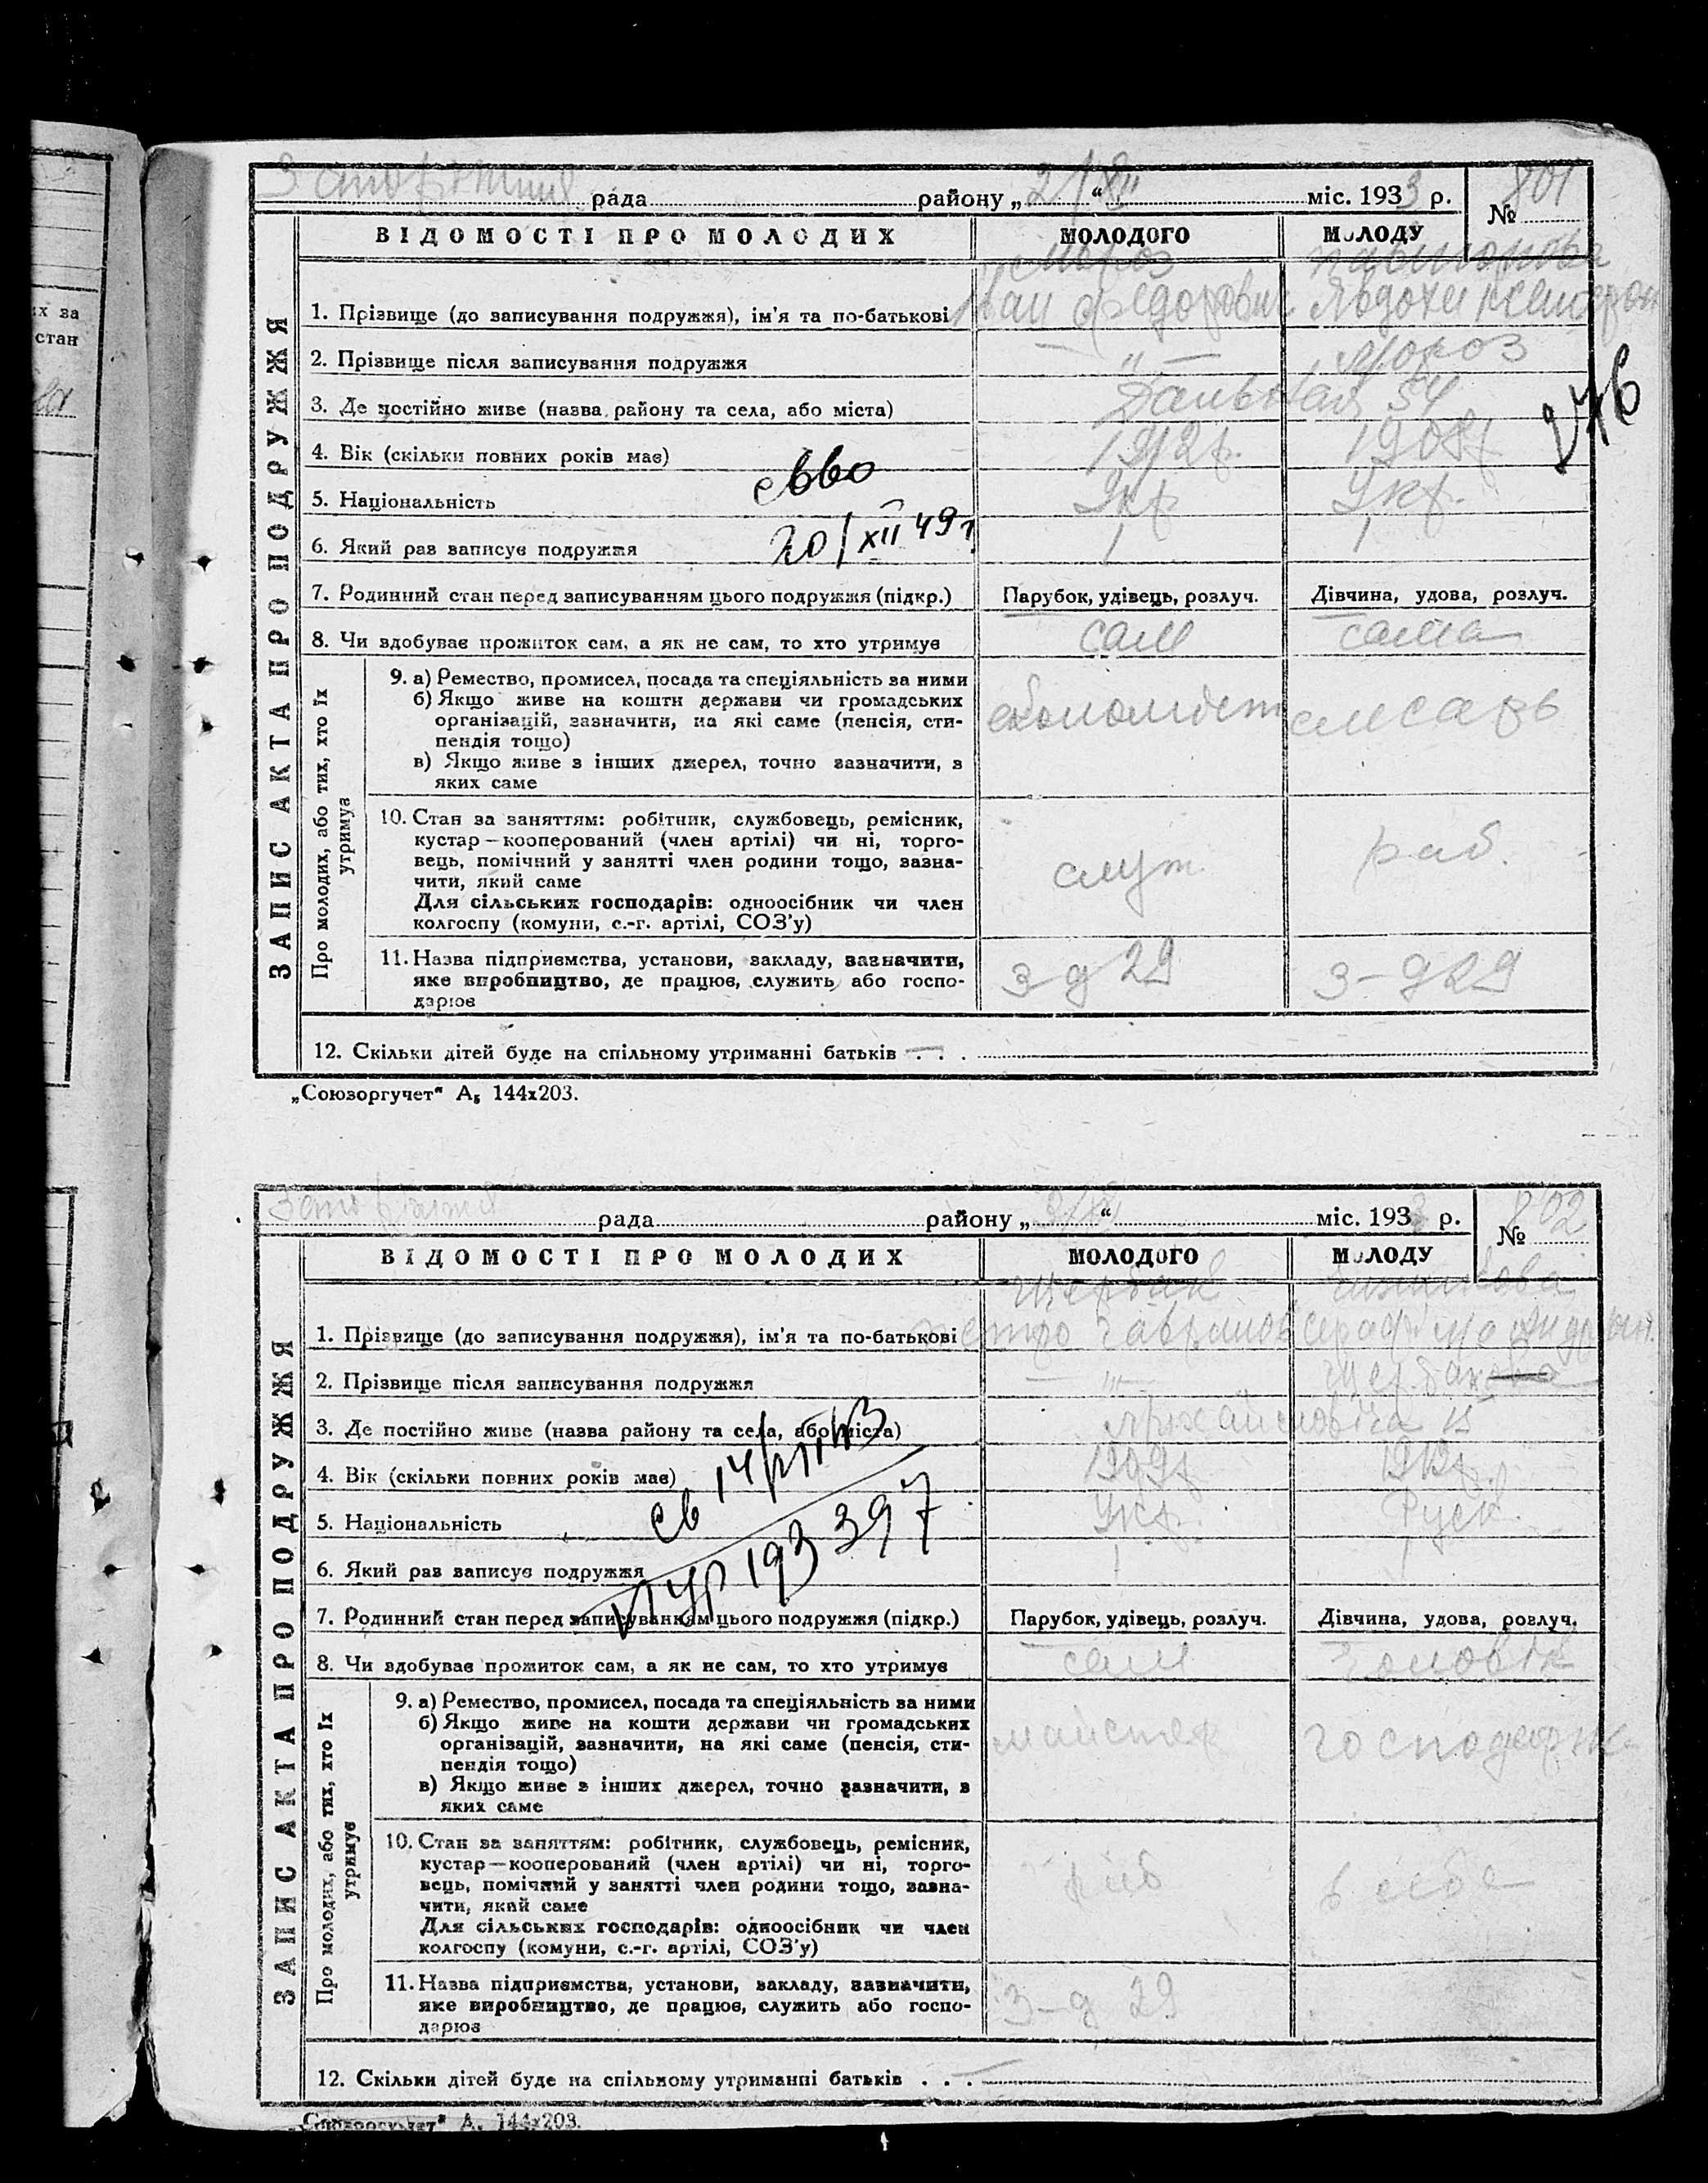 их за
стан
Запоріжжя рада района „2/XII“ міс. 1933 р. № 801
ВІДОМОСТІ ПРО МОЛОДИХ МОЛОДОГО МОЛОДУ
ЗАПИС АКТА ПРО ПОДРУЖЖЯ
Мороз
1. Прізвище (до записування подружжя), ім’я та по-батькові Іван Федорович Явдоха
2. Прізвище після записування подружжя — „ — Мороз
3. Де постійно живе (назва району та села, або міста) Дальная 54
276
4. Вік (скільки повних років має) 1912р. 1908р.
5. Національність Укр. Укр.
6. Який раз записує подружжя 20/XII 49 г. 1 1
7. Родинний стан перед записуванням цього подружжя (підкр.) Парубок, удівець, розлуч. Дівчина, удова, розлуч.
8. Чи здобуває прожиток сам, а як не сам, то хто утримує сам сама
Про молодих, або тих, хто їх утримує
9. а) Ремество, промисел, посада та спеціяльність за ними
б) Якщо живе на кошти держави чи громадських
організацій, зазначити, на які саме (пенсія, сти- економіст слюсарь
пендія тощо)
в) Якщо живе з інших джерел, точно зазначити, з
яких саме
10. Стан за заняттям: робітник, службовець, ремісник,
кустар—кооперований (член артілі) чи ні, торго-
вець, помічний у занятті член родини тощо, зазна- служ. раб.
чити, який саме
Для сільських господарів: одноосібник чи член
колгоспу (комуни, с.-г. артілі, СОЗ’у)
11. Назва підприємства, установи, закладу, зазначити,
яке виробництво, де працює, служить або госпо- з-д 29 з-д 29
дарює
12. Скільки дітей буде на спільному утриманні батьків — . . .
„Союзоргучет“ А₅ 144х203.
Запоріжжя рада району „ “ міс. 193 р. № 802
ВІДОМОСТІ ПРО МОЛОДИХ МОЛОДОГО МОЛОДУ
ЗАПИС АКТА ПРО ПОДРУЖЖЯ
Щербак
1. Прізвище (до записування подружжя), ім’я та по-батькові Петро Гаврилов Серафіма
2. Прізвище після записування подружжя — „ — Щербак
3. Де постійно живе (назва району та села, або міста)
4. Вік (скільки повних років має) 1909р. 1912р.
5. Національність Укр. Руск.
6. Який раз записує подружжя 1 1
193 397
7. Родинний стан перед записуванням цього подружжя (підкр.) Парубок, удівець, розлуч. Дівчина, удова, розлуч.
8. Чи здобуває прожиток сам, а як не сам, то хто утримує сам чоловік
Про молодих, або тих, хто їх утримує
9. а) Ремество, промисел, посада та спеціяльність за ними
б) Якщо живе на кошти держави чи громадських
організацій, зазначити, на які саме (пенсія, сти- майстер господарж.
пендія тощо)
в) Якщо живе з інших джерел, точно зазначити, з
яких саме
10. Стан за заняттям: робітник, службовець, ремісник,
кустар—кооперований (член артілі) чи ні, торго-
вець, помічний у занятті член родини тощо, зазна- раб в себе
чити, який саме
Для сільських господарів: одноосібник чи член
колгоспу (комуни, с.-г. артілі, СОЗ’у)
11. Назва підприємства, установи, закладу, зазначити,
яке виробництво, де працює, служить або госпо- з-д 29
дарює
12. Скільки дітей буде на спільному утриманні батьків . . . —
„Союзоргучет“ А₅ 144х203.